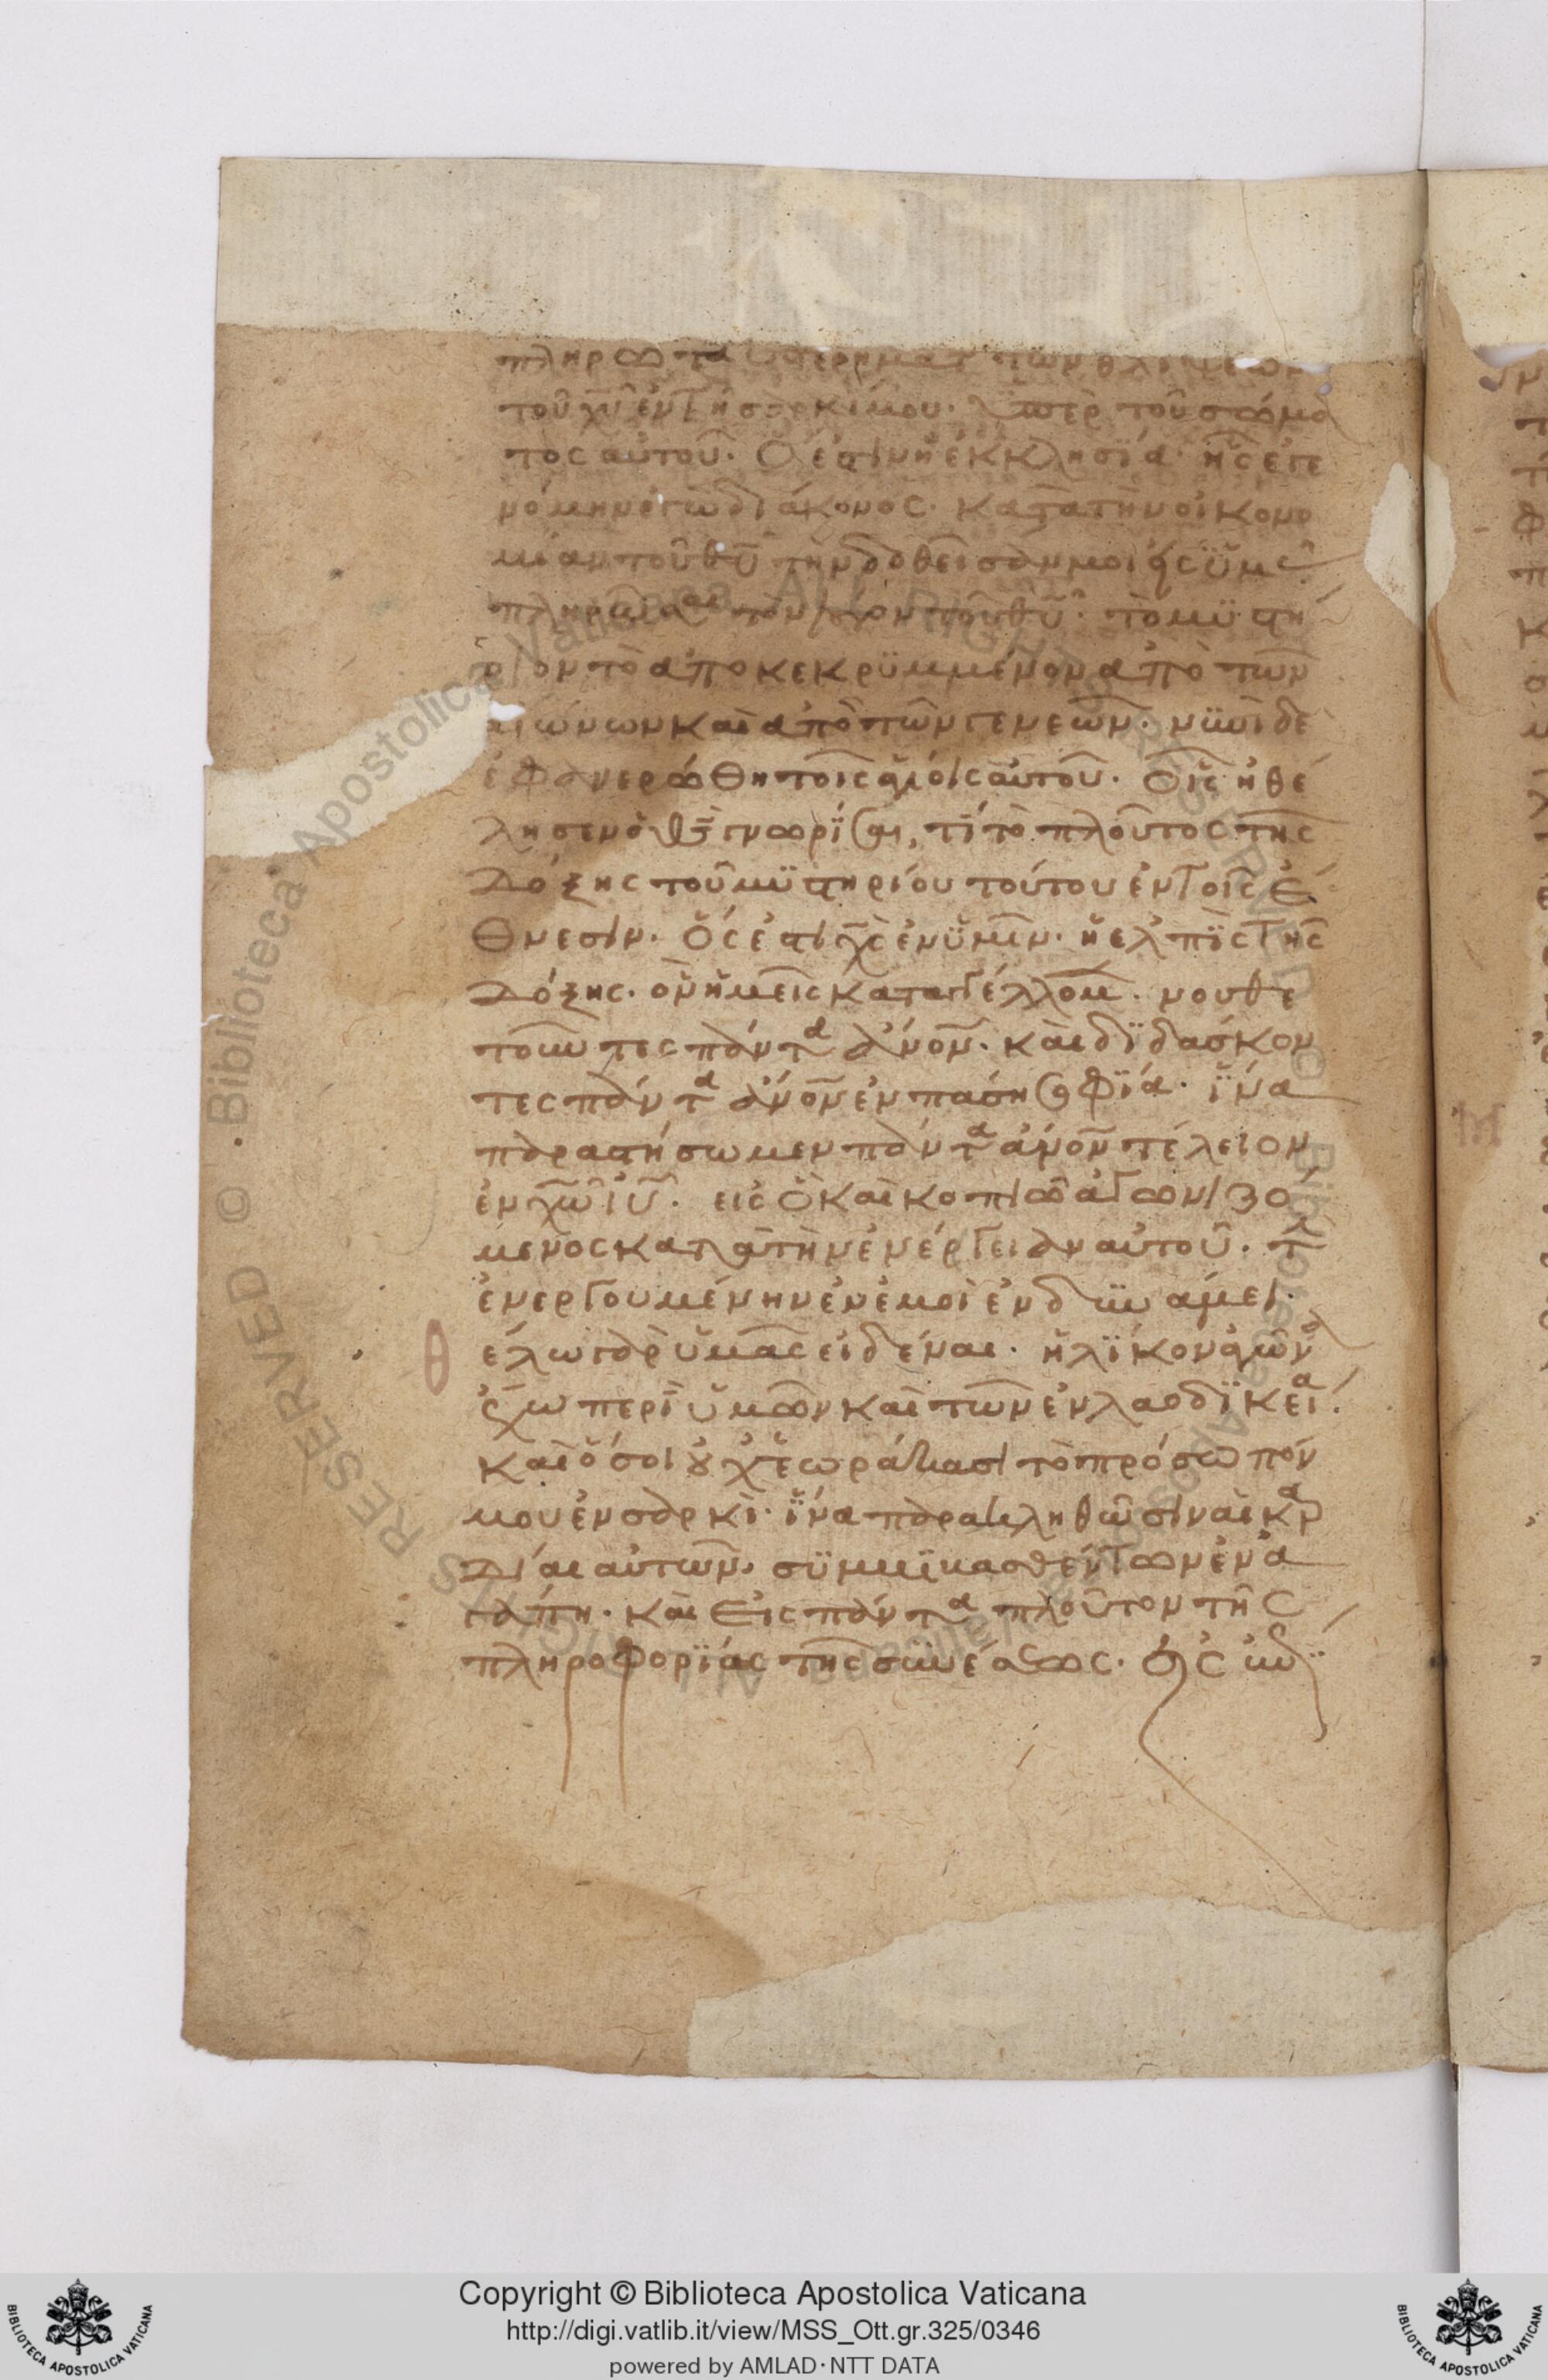 πληρῶ τὰ ὑστερήματ τῶν θλίψεων
τοῦ χυ ἐν τῆ σαρκί μου· ὑπὲρ τοῦ σώμα
τος αὐτοῦ· ὅ ἐστιν ἡ ἐκκλησΐα· ἧς ἐγε
νόμην ἐγὼ διάκονος· κατὰ τὴν οἰκονο
μίαν τοῦ θυ τὴν δοθεῖσαν μοι εἰς ὑμᾶς
πληρῶσαι τὸν λόγον τοῦ θυ· τὸ μϋστή
ριον τὸ ἀποκεκρϋμμένον ἀπὸ τῶν
αἰώνων καὶ ἀπὸ τῶν γενεῶν· νϋνὶ δὲ
ἐφανερώθη τοῖς ἁγίοις αὐτοῦ· οἷς ἠθέ
λησεν ὁ θς γνωρΐσαι, τΐ τὸ πλοῦτος τῆς
δόξης τοῦ μϋστηρίου τούτου ἐν τοῖς ἔ
θνεσιν· ὅς ἐστι χς ἐν ὑμῖν· ἡ ἐλπῒς τῆς
δόξης· ὃν ἡμεῖς καταγγέλλομ· νουθε
τοῦντες πάντα ἄνον· καὶ δϊδάσκον
τες πάντα ἄνον ἐν πάση σοφΐα· ἵνα
παραστήσωμεν πάντα ἄνον τέλειον
ἐν χω ιυ· εἰς ὃ καὶ κοπιῶ ἀγωνιζό
μενος κατὰ τὴν ἐνέργειαν αὐτοῦ· τὴν
ἐνεργουμένην ἐν ἐμοὶ ἐν δϋνάμει·
θέλω γὰρ ὑμᾶς εἰδέναι· ἡλΐκον ἀγῶνα
ἔχω περὶ ὑμῶν καὶ τῶν ἐν λαοδϊκεία·
καὶ ὅσοι οὐχ ἑωράκασι τὸ πρόσωπόν
μου ἐν σαρκί· ἵνα παρακληθῶσιν αἱ καρ
δίαι αὐτῶν· σϋμβϊβασθέντων ἐν ἀ
γάπη· καὶ εἰς πάντα πλοῦτον τῆς
πληροφορΐας τῆς σϋνέσεως· εἰς ἐπΐ
© Biblioteca Apostolica Vaticana ALL RIGHTS RESERVED
Copyright © Biblioteca Apostolica Vaticana
http://digi.vatlib.it/view/MSS_Ott.gr.325/0346
powered by AMLAD·NTT DATA
BIBLIOTECA APOSTOLICA VATICANA
BIBLIOTECA APOSTOLICA VATICANA